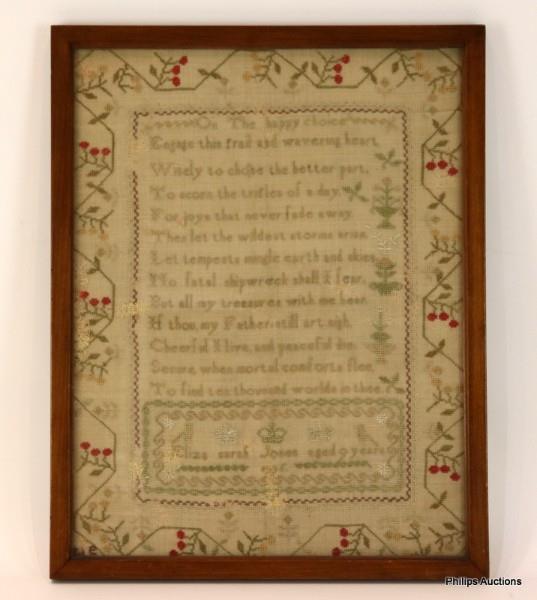 On The happy choice
Engage this frail and wavering heart
Wisely to chose the better part,
To scorn the trifles of a day,
For joys that never fade away
Then let the wildest storms arise
Let tempests mingle earth and skies
No fatal shipwreck shall I fear
But all my treasures with me bear
If thou, my Father, still art nigh
Cheerful I live, and peaceful die
Secure, when mortal comforts flee
To find ten thousand worlds in thee
Eliza Sarah Jones aged 9 years
Philips Auctions